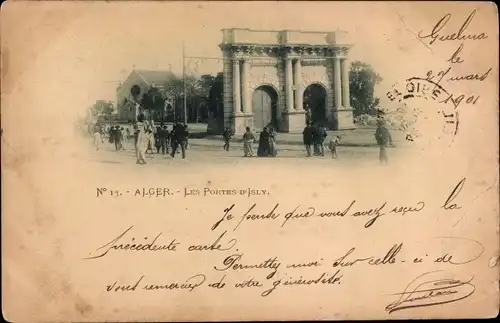 Guelma
le
29 mars
1901
N° 13. - ALGER. - LES PORTES D'ISLY.
Je pense que vous avez reçu la
précédente carte.
Permettez moi sur celle-ci de
vous remercier de votre générosité.